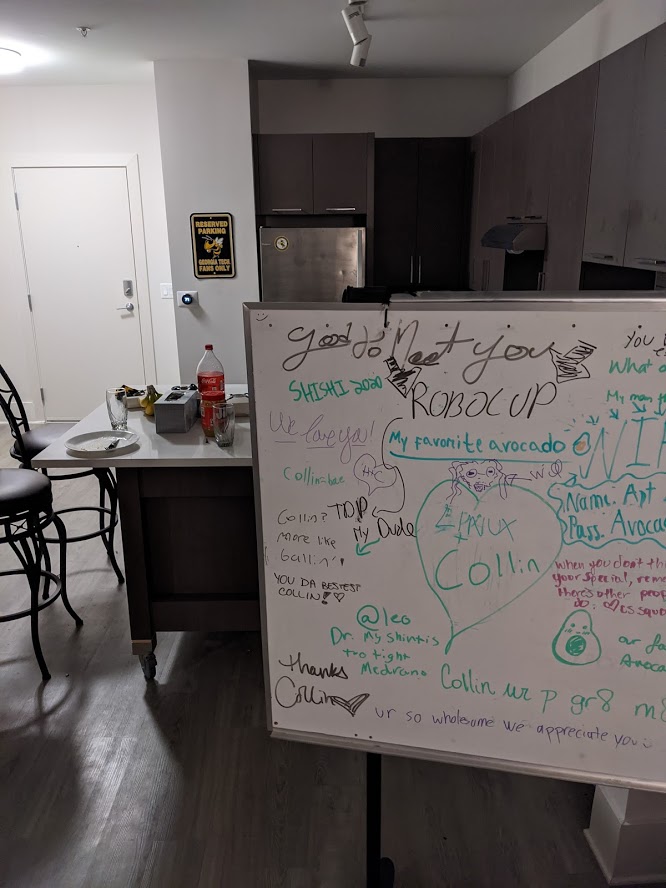 RESERVED
PARKING
GEORGIA TECH
FANS ONLY
Coca-Cola
Good to Meet you
SHISHI 2020
ROBOCUP
We love you!
My favorite avocado
Collin=bae
H+C
will
TDP
My Dude
Collin?
More like
ballin'!
YOU DA BESTEST
COLLIN!♡
Collin
@leo
Dr. My shirt is
too tight
Medrano
thanks
Collin
Collin ur p gr8 m8
ur so wholesome we appreciate you
You
What a
My man
WIF
Name: Apt
Pass: Avoca
when you don't thi
your special, reme
there's other peop
Avoca